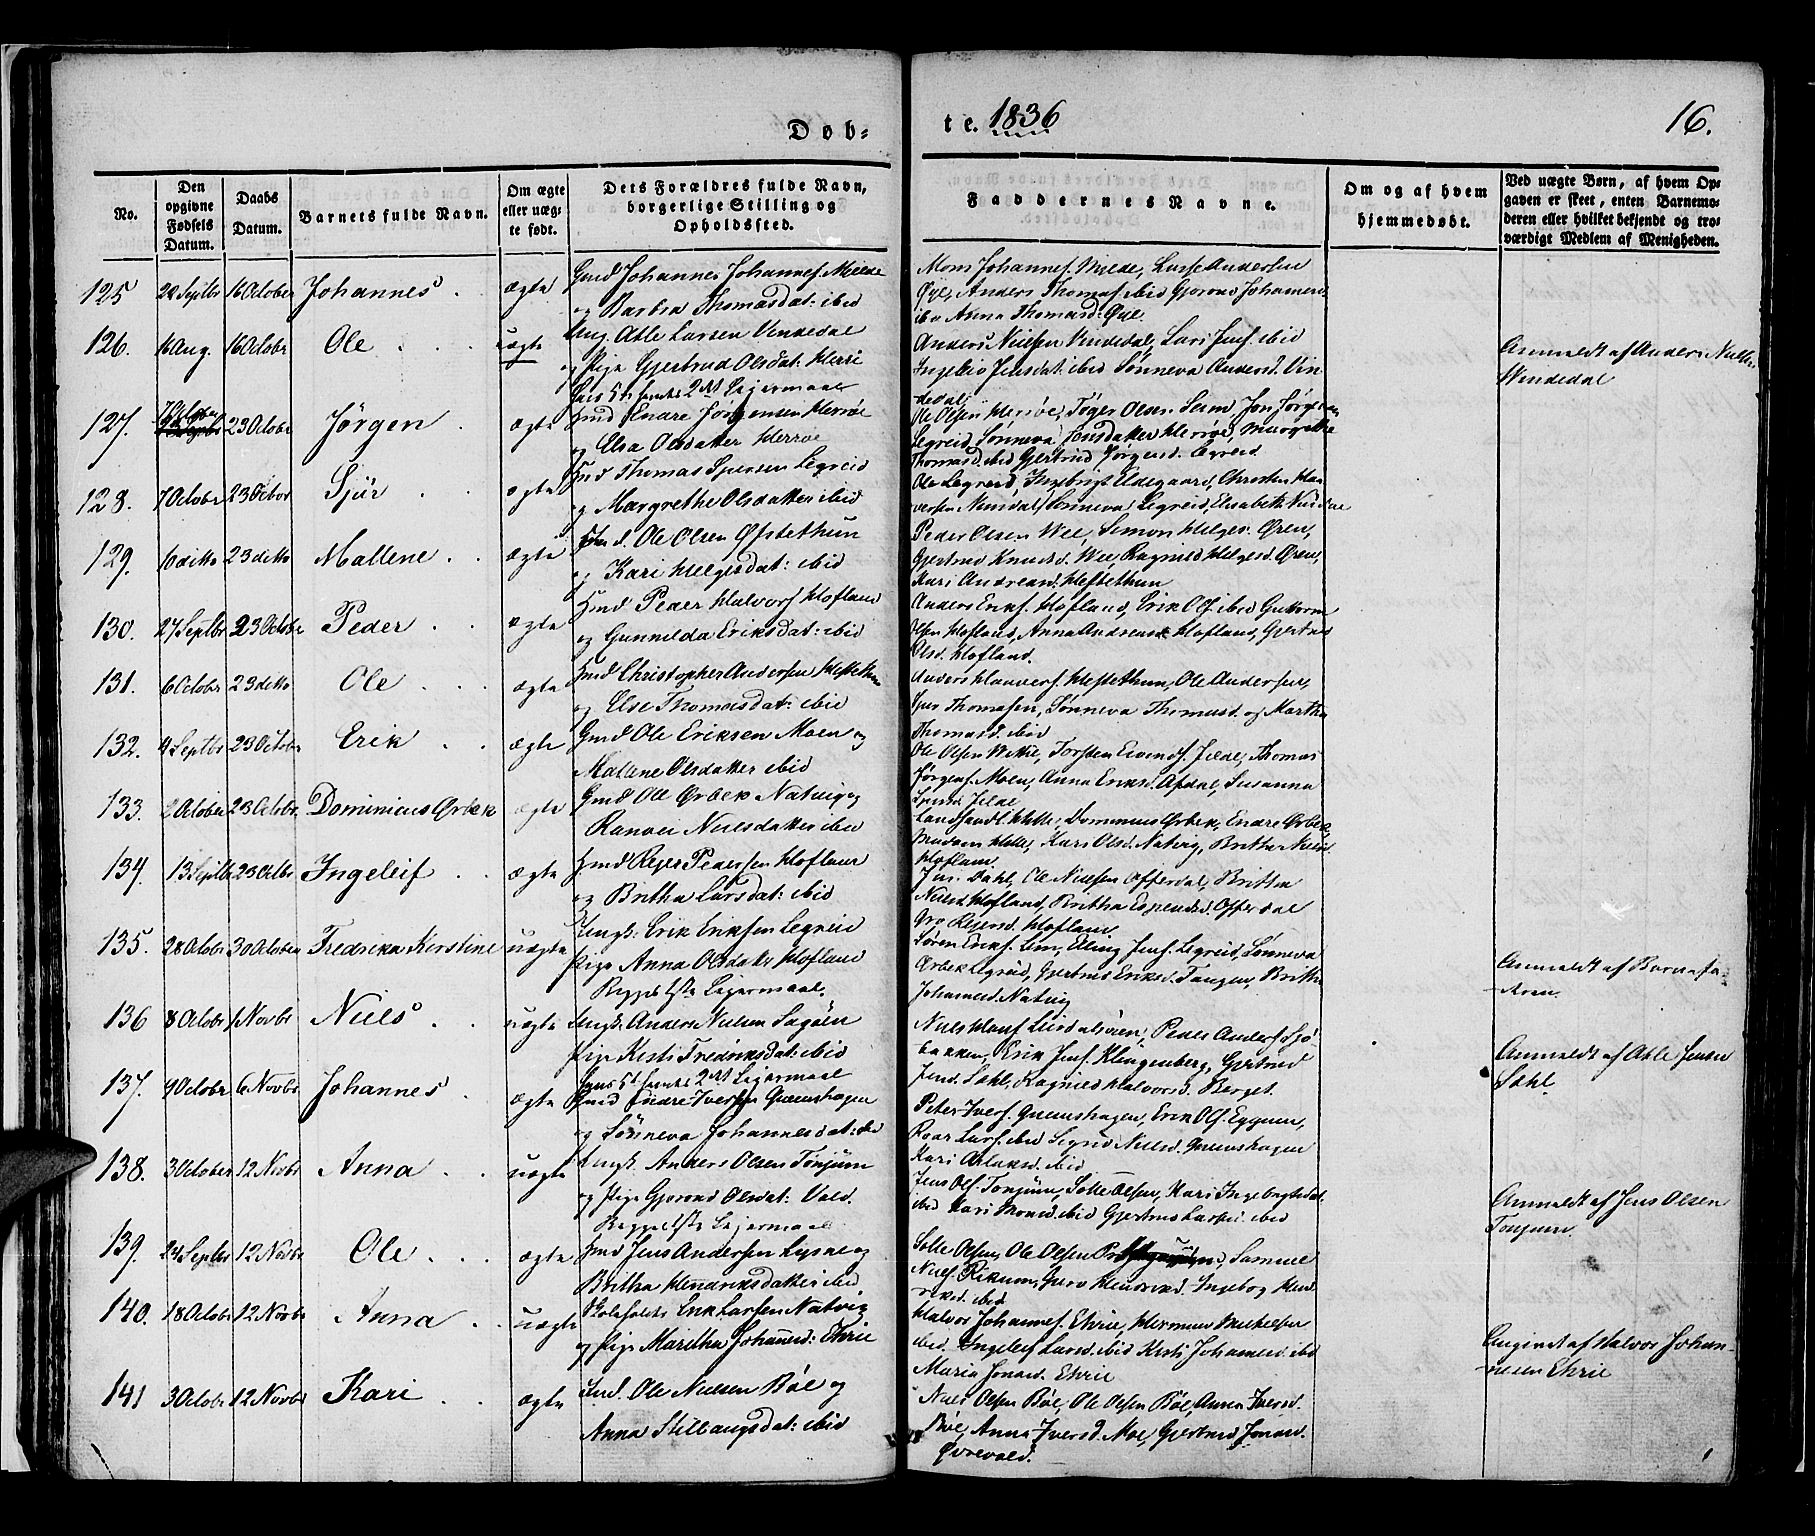 Døb-
te. 1836
16.
No.
Den opgivne Fødsels Datum.
Daabs Datum.
Barnets fulde Navn.
Om ægte eller uægte født.
Dets Forældres fulde Navn, borgerlige Stilling og Opholdssted.
Faddernes Navne.
Om og af hvem hjemmedøbt.
Ved uægte Børn, af hvem Opgaven er skeet, enten Barnemoderen eller hvilket bekjendt og troværdigt Medlem af Menigheden.
125 22 Septbr 16 October Johannes. ægte Gmd Johannes Johannes. Melde
og Barbra Thomasdat: ibid
Mons Johannes. Melde, Lasse Andersen
Øye, Anders Thomas. ibid Gjorond Johannesd.
ibid Anna Thomasd. Øye.
126. 16 Aug. 16 Octobr Ole uægte Ung. Atle Larsen Vendedal
og Pige Gjertrud Olsdat: Herre
hans 5te hendes 2det Lejermaal
Anders Nielsen Vendedal, Lars Jens. ibid
Ingeleiv Jensdat: ibid Sønneva Andersd. Vin-
dedal
Anmeldt af Anders Niels.
Vendedal
127. 23 Octobr Jørgen ægte Gmd Endre Jørgensen Herrøe
og Elsa Olsdatter Herrøe
Ole Olsen Herrøe, Tøger Olsen Seim, Jon Jørgensen
Legreid Sønneva Jensdatter Herrøe, Margrethe
Thomasd. ibid Gjertrud Jørgensd. Legreid
128. 7 Octobr 23 Octobr Sjur ægte Hmd Thomas Spersen Legreid
og Margrethe Olsdatter ibid
Ole Legreid, Ingebrigt Eldegaard, Christen Hal-
versen Nundal Sønneva Legreid, Elisabeth Nundal
129. 10 ditto 23 ditto Mallene ægte Hmd. Ole Olsen Øfstethun
og Kari Helgesdat: ibid
Peder Olsen Wee, Simon Helges. Øren,
Gjertrud Knudsd. Wee, Ragnild Helgesd. Øren,
Kari Andreasd. Hestethun
130. 27 Septbr 23 Octobr Peder ægte Hmd Peder Halvors. Hofland
og Gunnilda Eriksdat: ibid
Anders Eriks. Hofland, Erik Ols. ibid Guttorm
Olsen Hofland, Anna Andersd. Hofland, Gjertrud
Olsd. Hofland.
131. 6 Octobr 23 ditto Ole ægte Hmd Christopher Andersen Hestethun
og Else Thomasdat: ibid
Anders Hanvers. Hestethun, Ole Andersen,
Thomasen, Sønneva Thomasd. og Martha
Thomasd. ibid
132. 4 Septbr 23 Octobr Erik ægte Gmd Ole Eriksen Moen og
Mallene Olsdatter ibid
Ole Olsen Wetti, Torsten Eivends. Jelde, Thomas
Jørgens. Moen, Anna Eriksd. Afdal, Susanna
Jelde
133. 2 October 23 Octobr. Dominicus Ørbek ægte Gmd Ole Ørbek Natvig og
Ranvei Nielsdatter ibid
Dominicus Ørbek, Endre Ørbek,
Madam Helle, Kari Olsd. Natvig, Britha Nielsd.
Hofland
134. 13 Septbr 23 Octbr Ingeleif ægte Hmd Rejer Pedersen Hofland
og Britha Larsdat: ibid
Jens Dahl, Ole Nielsen Offerdal, Britha
Nielsd Hofland, Britha Espensd. Offerdal
Gro Rejersd. Hofland
135. 28 Octobr 30 October Fredrika Kirstine uægte Ungk: Erik Eriksen Legreid
Pige Anna Olsdatr Hofland
Begges 1ste Lejermaal.
Søren Eriks. Lem, Eling Jens. Legreid, Sønneva
Ørbek Legreid, Gjertrud Eriksd. Tangen, Britha
Johannesd. Natvig
Anmeldt af Barnefa-
deren
136 8 Octobr 1 Novbr Niels uægte Ungk: Anders Nielsen Sagøen
Pige Kirsti Fredriksdat: ibid
hans 5te hendes 2det Lejermaal
Niels Hans. Leirdalsøren, Peder Anders. Sjø-
bakken, Erik Jens. Klingenberg, Gjertrud
Jensd. Sahl, Ragnild Halvorsd. Berget.
Anmeldt af Atle Jensen
Sahl.
137. 4 Octobr 6 Novbr Johannes ægte Gmd Endre Iversen Grønshagen
og Sønneva Johannesdat: ibid
Peter Ivers. Grønshagen, Erik Ols. Eggum,
Roar Lars. ibid Sigrid Nielsd. Grønshagen
Kari Aslaksd. ibid
138. 3 October 12 Novbr Anna uægte Ungk. Anders Olsen Tønjum
og Pige Gjorond Olsdat: Vold.
Begges 1ste Lejermaal
Jens Ols. Tonjum, Solle Olsen, Kari Ingebrigtsdat.
ibid Kari Monsd. ibid Gjertrud Larsd. ibid
Anmeldt af Jens Olsen
Tonjum.
139. 24 Septbr 12 Novbr Ole ægte Hmd Jens Andersen Lysne og
Britha Hendriksdatter ibid
Solle Olsen, Ole Olsen Samuel
Niels. Rikum, Guro Henriksd. Ingeborg Hend-
riksd. ibid
140. 18 Octobr 12 Novbr Anna uægte Erik Larsen Natvig
og Pige Maritha Johannesd: Ehrie
Halvor Johannes. Ehrie, Herman Mikkelsen
ibid. Ingeleif Larsd. ibid Kirsti Johannesd. ibid
Maria Jonasd. Ehrie
Angivet af Halvor Johan-
nesen Ehrie
141 3 Octobr 12 Novbr Kari ægte Hmd. Ole Nielsen Bøe og
Anna Stillaugsdat: ibid
Niels Olsen Bøe, Ole Olsen Bøe, Anna Iversd.
Bøe, Anna Iversd. Moe, Gjertrud Jonasd.
Øvrevold.